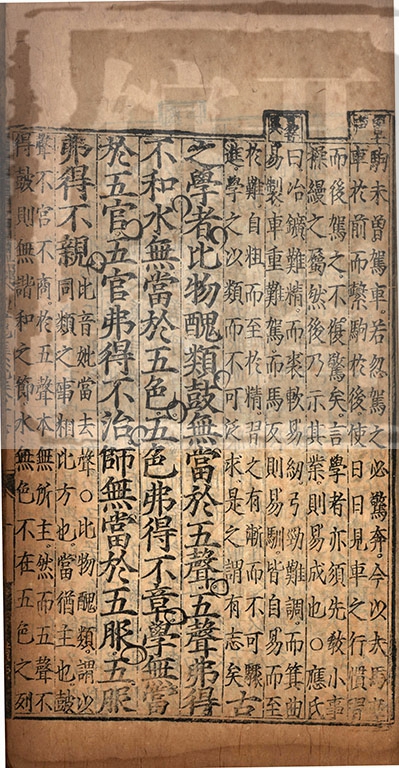 駒未曾駕車若忽駕之必驚奔今以大馬駕
車於前而繫駒於後使日日見車之行慣習
而後駕之不復驚矣言學者亦須先教小事
操縵之屬然後乃示其業則易成也○應氏
曰冶鑛難精而裘軟易紉弓勁難調而箕曲
易製車重難駕而馬反則易馴皆自易而至
於難自粗而至於精習之有漸而不可驟
進學之以類而不可泛求是之謂有志矣
古
之學者比物醜類鼓無當於五聲五聲弗得
不和水無當於五色五色弗得不章學無當
於五官五官弗得不治師無當於五服五服
弗得不親
比音妣當去聲○比物醜類謂以
同類之事相比方也當猶主也鼓
聲不宮不商於五聲本無所主然而五聲不
得鼓則無諧和之節水無色不在五色之列